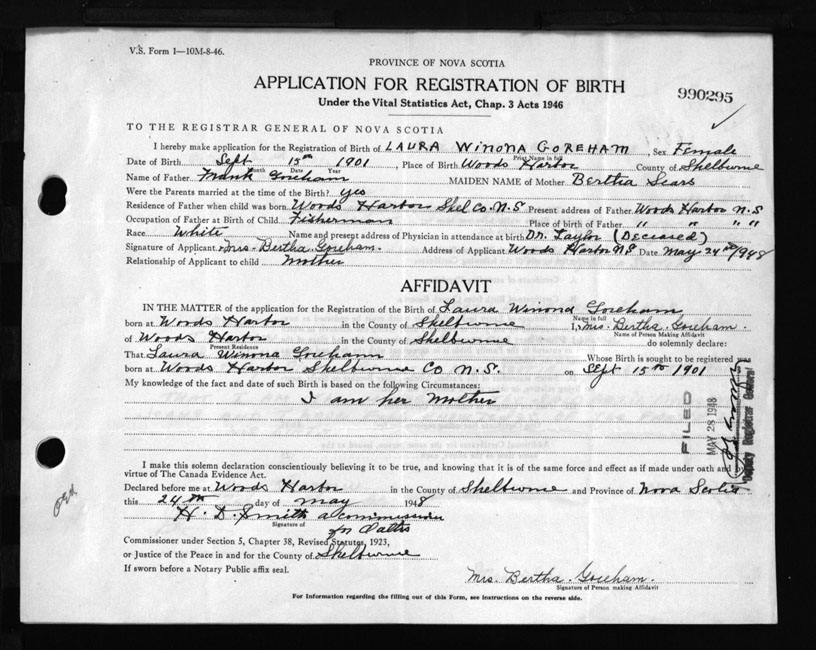 V.S. Form 1—10M-8-46.
PROVINCE OF NOVA SCOTIA
APPLICATION FOR REGISTRATION OF BIRTH
990295
Under the Vital Statistics Act, Chap. 3 Acts 1946
TO THE REGISTRAR GENERAL OF NOVA SCOTIA
I hereby make application for the Registration of Birth of LAURA WINONA GOREHAM, Sex Female
Print Name in full
Date of Birth Sept 15th 1901, Place of Birth Woods Harbor County of Shelburne
Month Date Year
Name of Father Frank Goreham MAIDEN NAME of Mother Bertha Sears
Were the Parents married at the time of the Birth? yes
Residence of Father when child was born Woods Harbor Shel Co. N.S Present address of Father Woods Harbor N.S
Occupation of Father at Birth of Child Fisherman Place of birth of Father " " " "
Race White Name and present address of Physician in attendance at birth Dr. Taylor (Deceared)
Signature of Applicant Mrs. Bertha Goreham. Address of Applicant Woods Harbor N.S. Date May 24th 1948
Relationship of Applicant to child Mother
AFFIDAVIT
IN THE MATTER of the application for the Registration of the Birth of Laura Winona Goreham
Name in full
born at Woods Harbor in the County of Shelburne I, Mrs. Bertha Goreham.
Name of Person Making Affidavit
of Woods Harbor in the County of Shelburne do solemnly declare:
Present Residence
That Laura Winona Goreham Whose Birth is sought to be registered
born at Woods Harbor Shelburne Co N.S. on Sept 15th 1901
My knowledge of the fact and date of such Birth is based on the following Circumstances:
I am her Mother
FILED
MAY 28 1948
Deputy Registrar General
I make this solemn declaration conscientiously believing it to be true, and knowing that it is of the same force and effect as if made under oath and by
virtue of The Canada Evidence Act.
Declared before me at Woods Harbor in the County of Shelburne and Province of Nova Scotia
this 24th day of May 1948
H. D. Smith a commission
Signature of
Commissioner under Section 5, Chapter 38, Revised Statutes, 1923,
or Justice of the Peace in and for the County of Shelburne
If sworn before a Notary Public affix seal.
Mrs. Bertha Goreham.
Signature of Person making Affidavit
For Information regarding the filling out of this Form, see instructions on the reverse side.